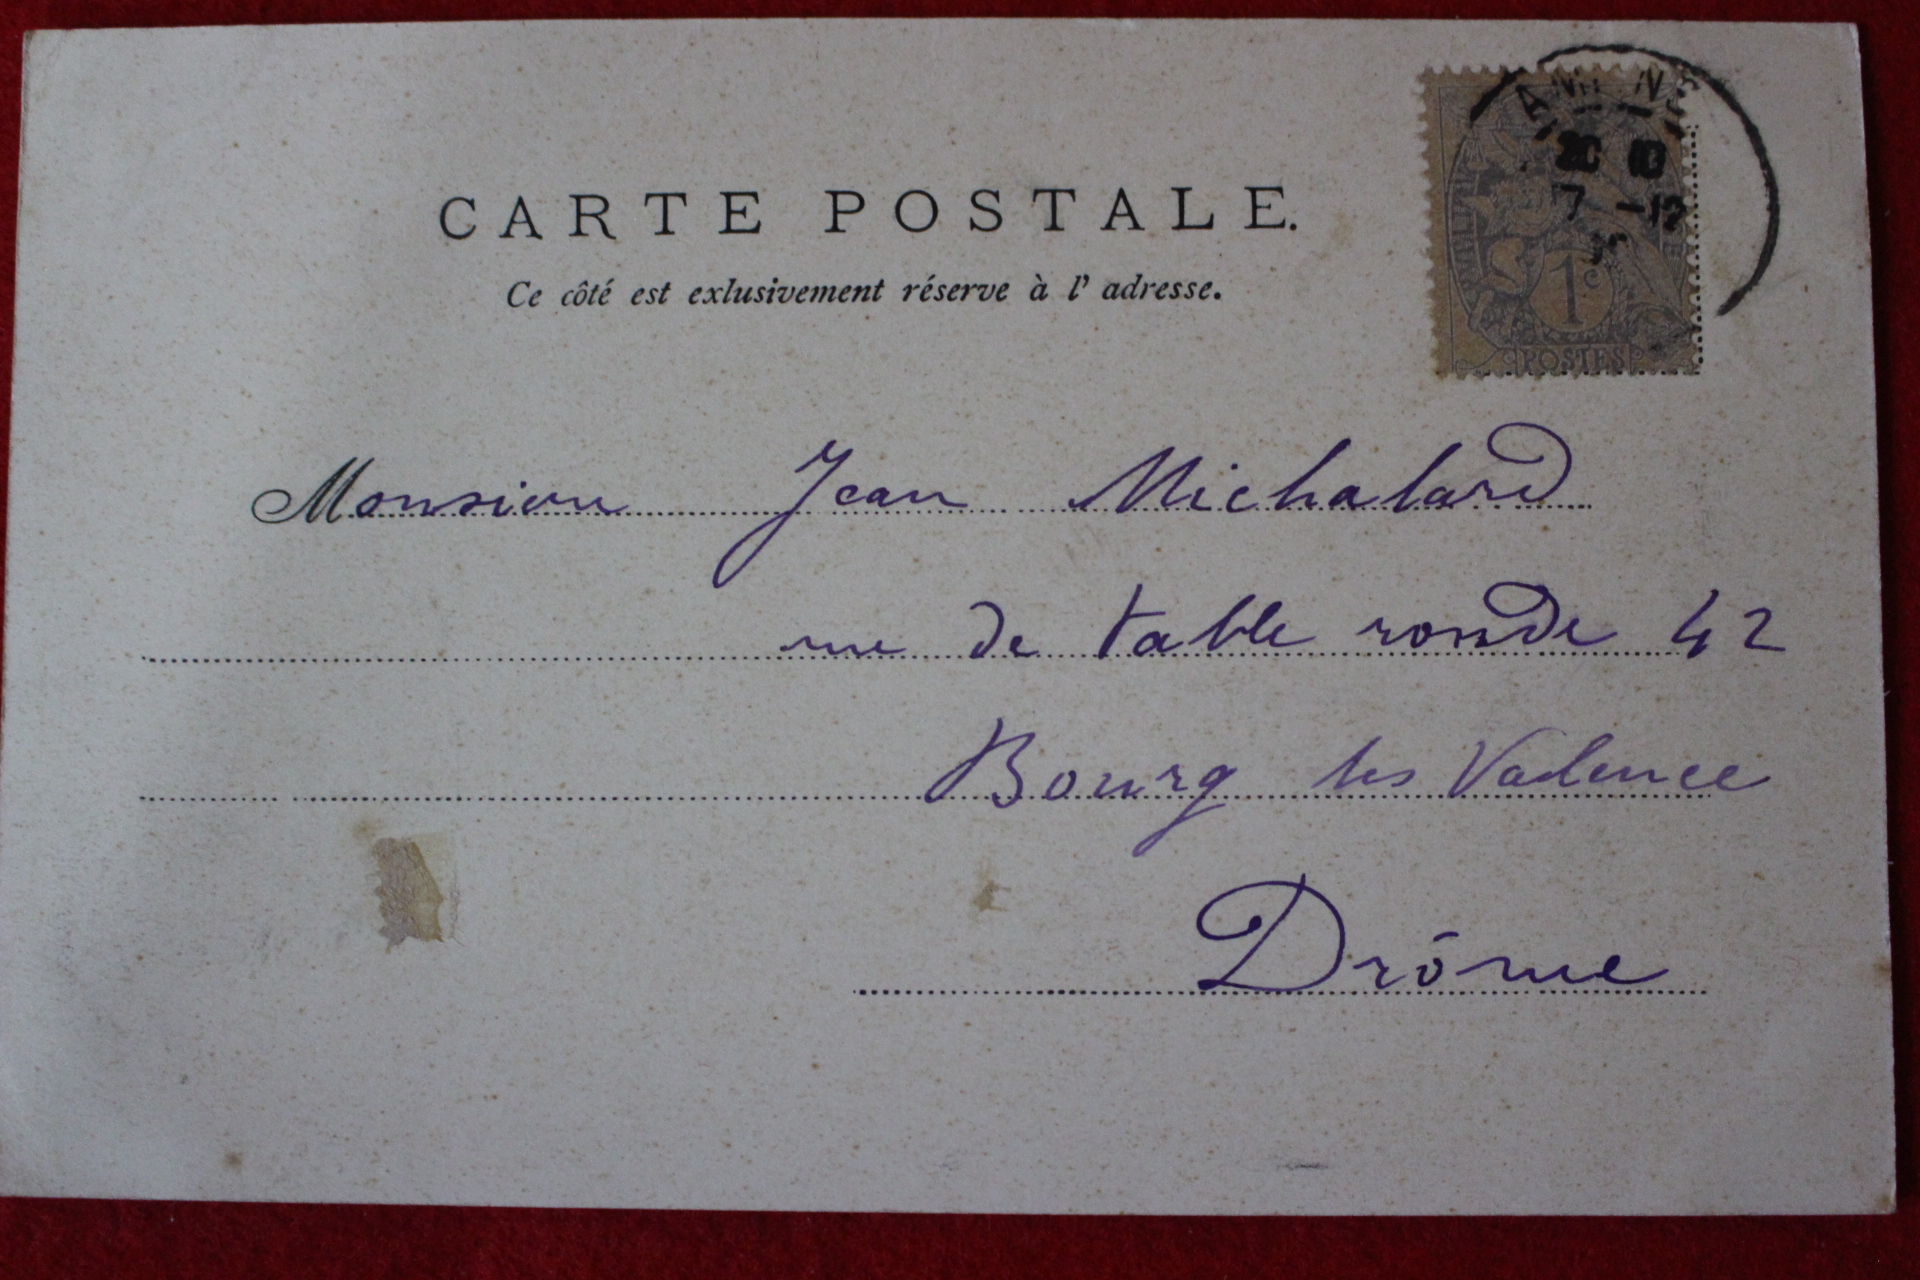 CARTE POSTALE.
Ce côté est exlusivement réserve à l' adresse.
1c
POSTES
7 -12
Monsieur Jean Michalard
rue de table ronde 42
Bourg les Valence
Drôme